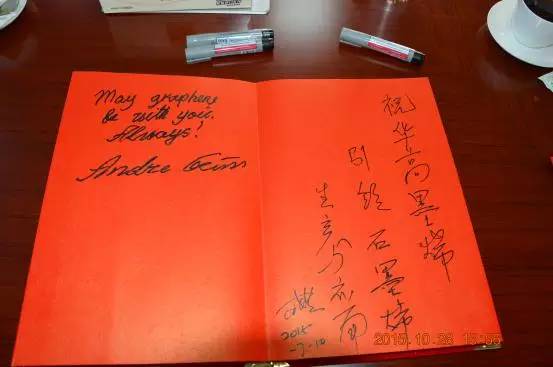 May graphene
be with you.
Always!
Andre Geim
祝华高墨烯
引领石墨烯
生产与应用
2015
-7-10
2015.10.28